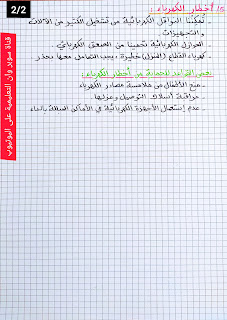 2/2
15 أخطار الكهرباء :
- تمكننا النواقل الكهربائية من تشغيل الكثير من الآلات
و التجهيزات .
- العوازل الكهربائية تحمينا من الصعق الكهربائي
- كهرباء القطاع (المنزل) خطيرة ، يجب التعامل معها بحذر
بعض القواعد للحماية من أخطار الكهرباء :
- منع الأطفال من ملامسة مصادر الكهرباء
- مراقبة أسلاك التوصيل وعزلها .
- عدم إستعمال الأجهزة الكهربائية في الأماكن المبللة بالماء
قناة سوبر وان التعليمية على اليوتيوب